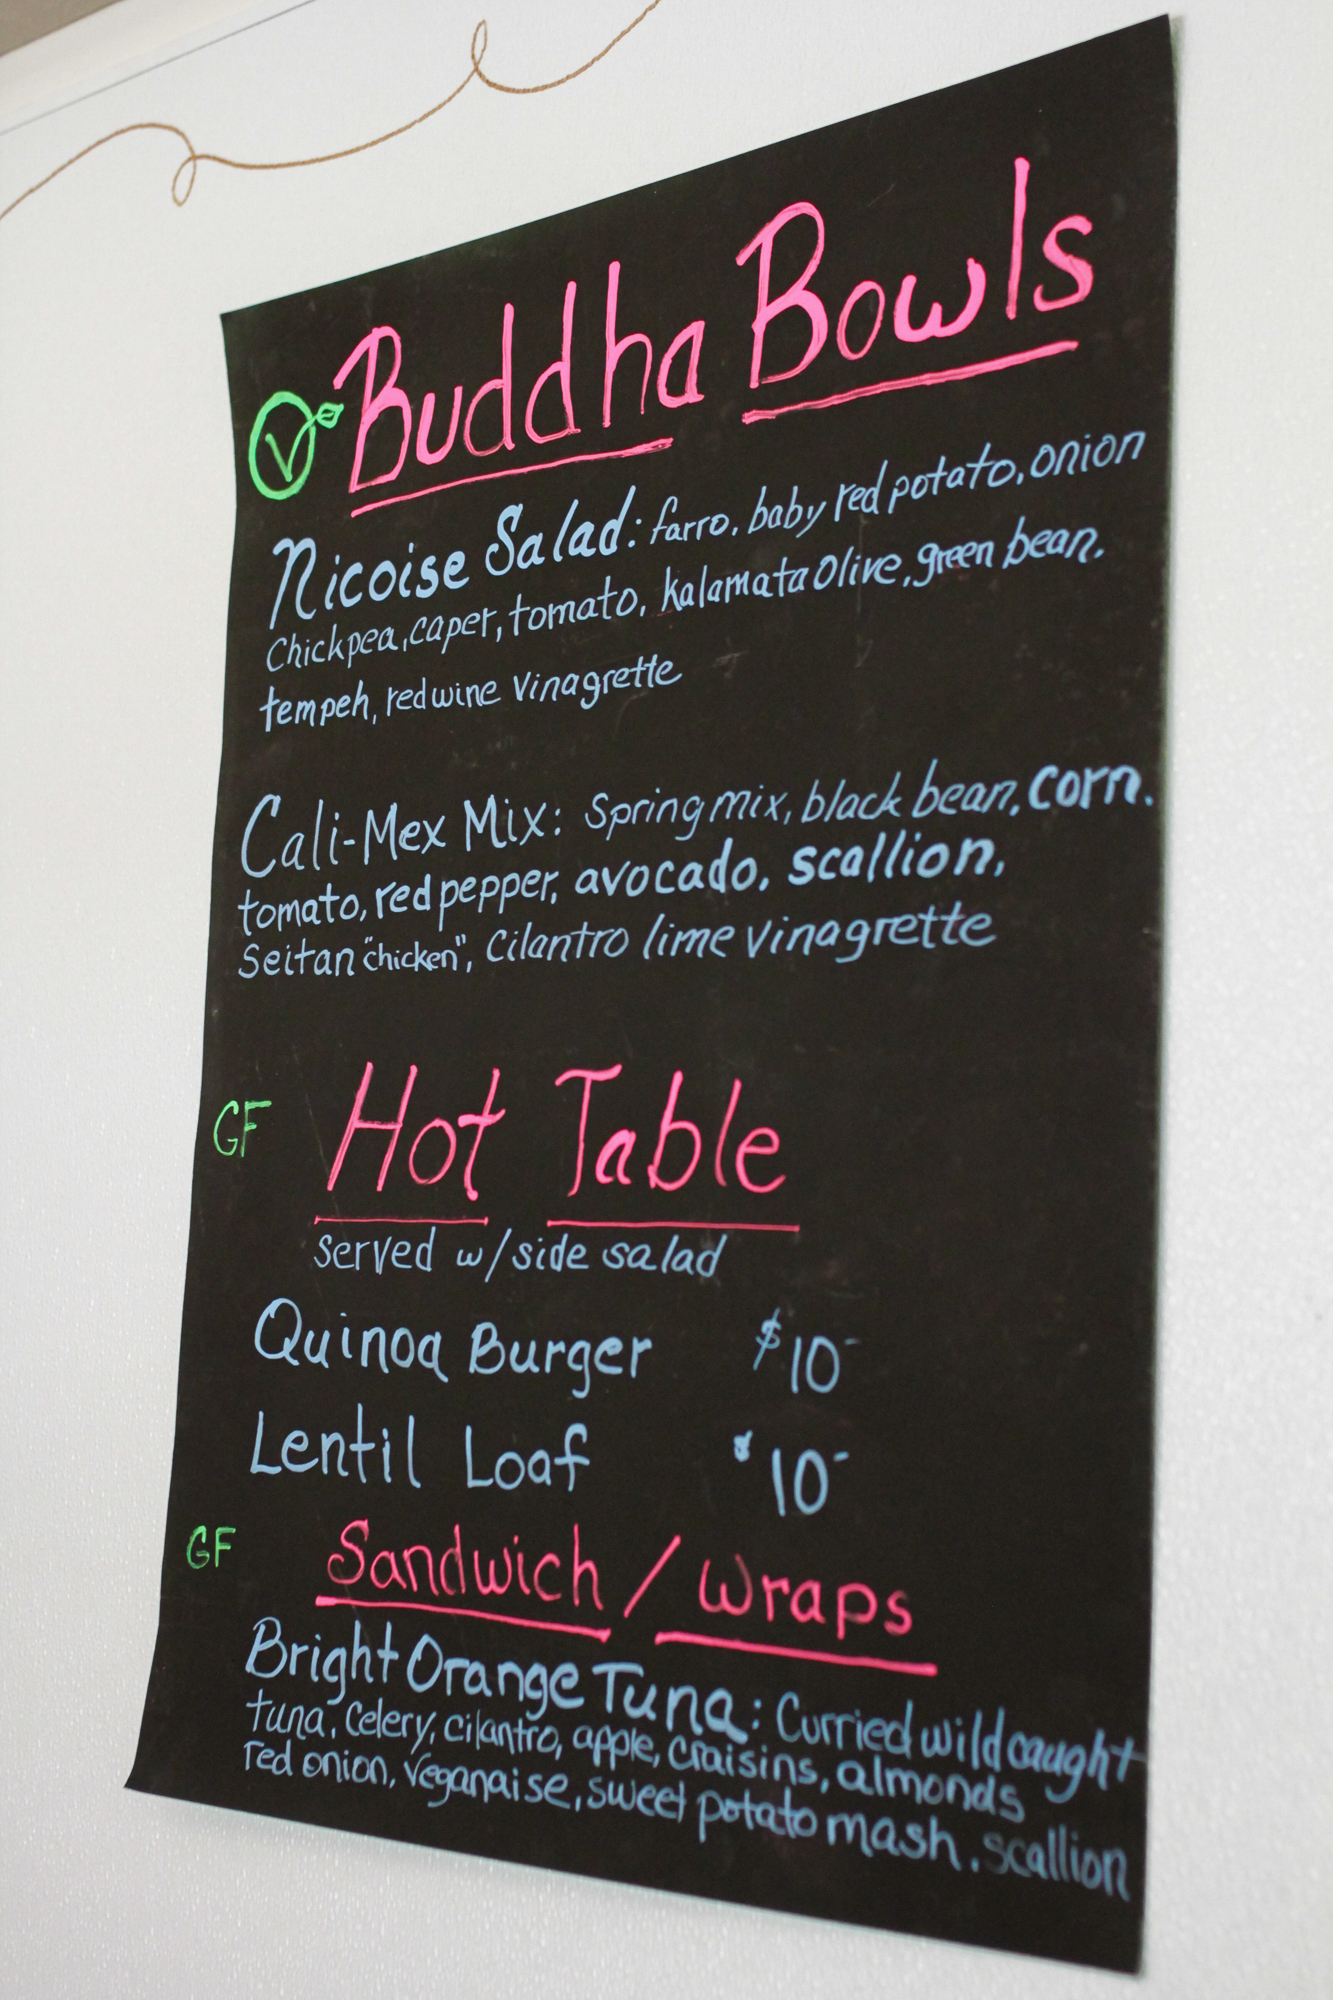 V Buddha Bowls
Nicoise Salad: farro, baby red potato, onion
Chickpea, caper, tomato, kalamata Olive, green bean,
tempeh, red wine vinagrette
Cali-Mex Mix: Spring mix, black bean, corn,
tomato, red pepper, avocado, scallion,
Seitan "chicken", Cilantro lime vinagrette
GF Hot Table
served w/side salad
Quinoa Burger $10-
Lentil Loaf $10-
GF Sandwich / Wraps
Bright Orange Tuna: Curried wild caught
tuna, celery, cilantro, apple, craisins, almonds
red onion, veganaise, sweet potato mash, scallion